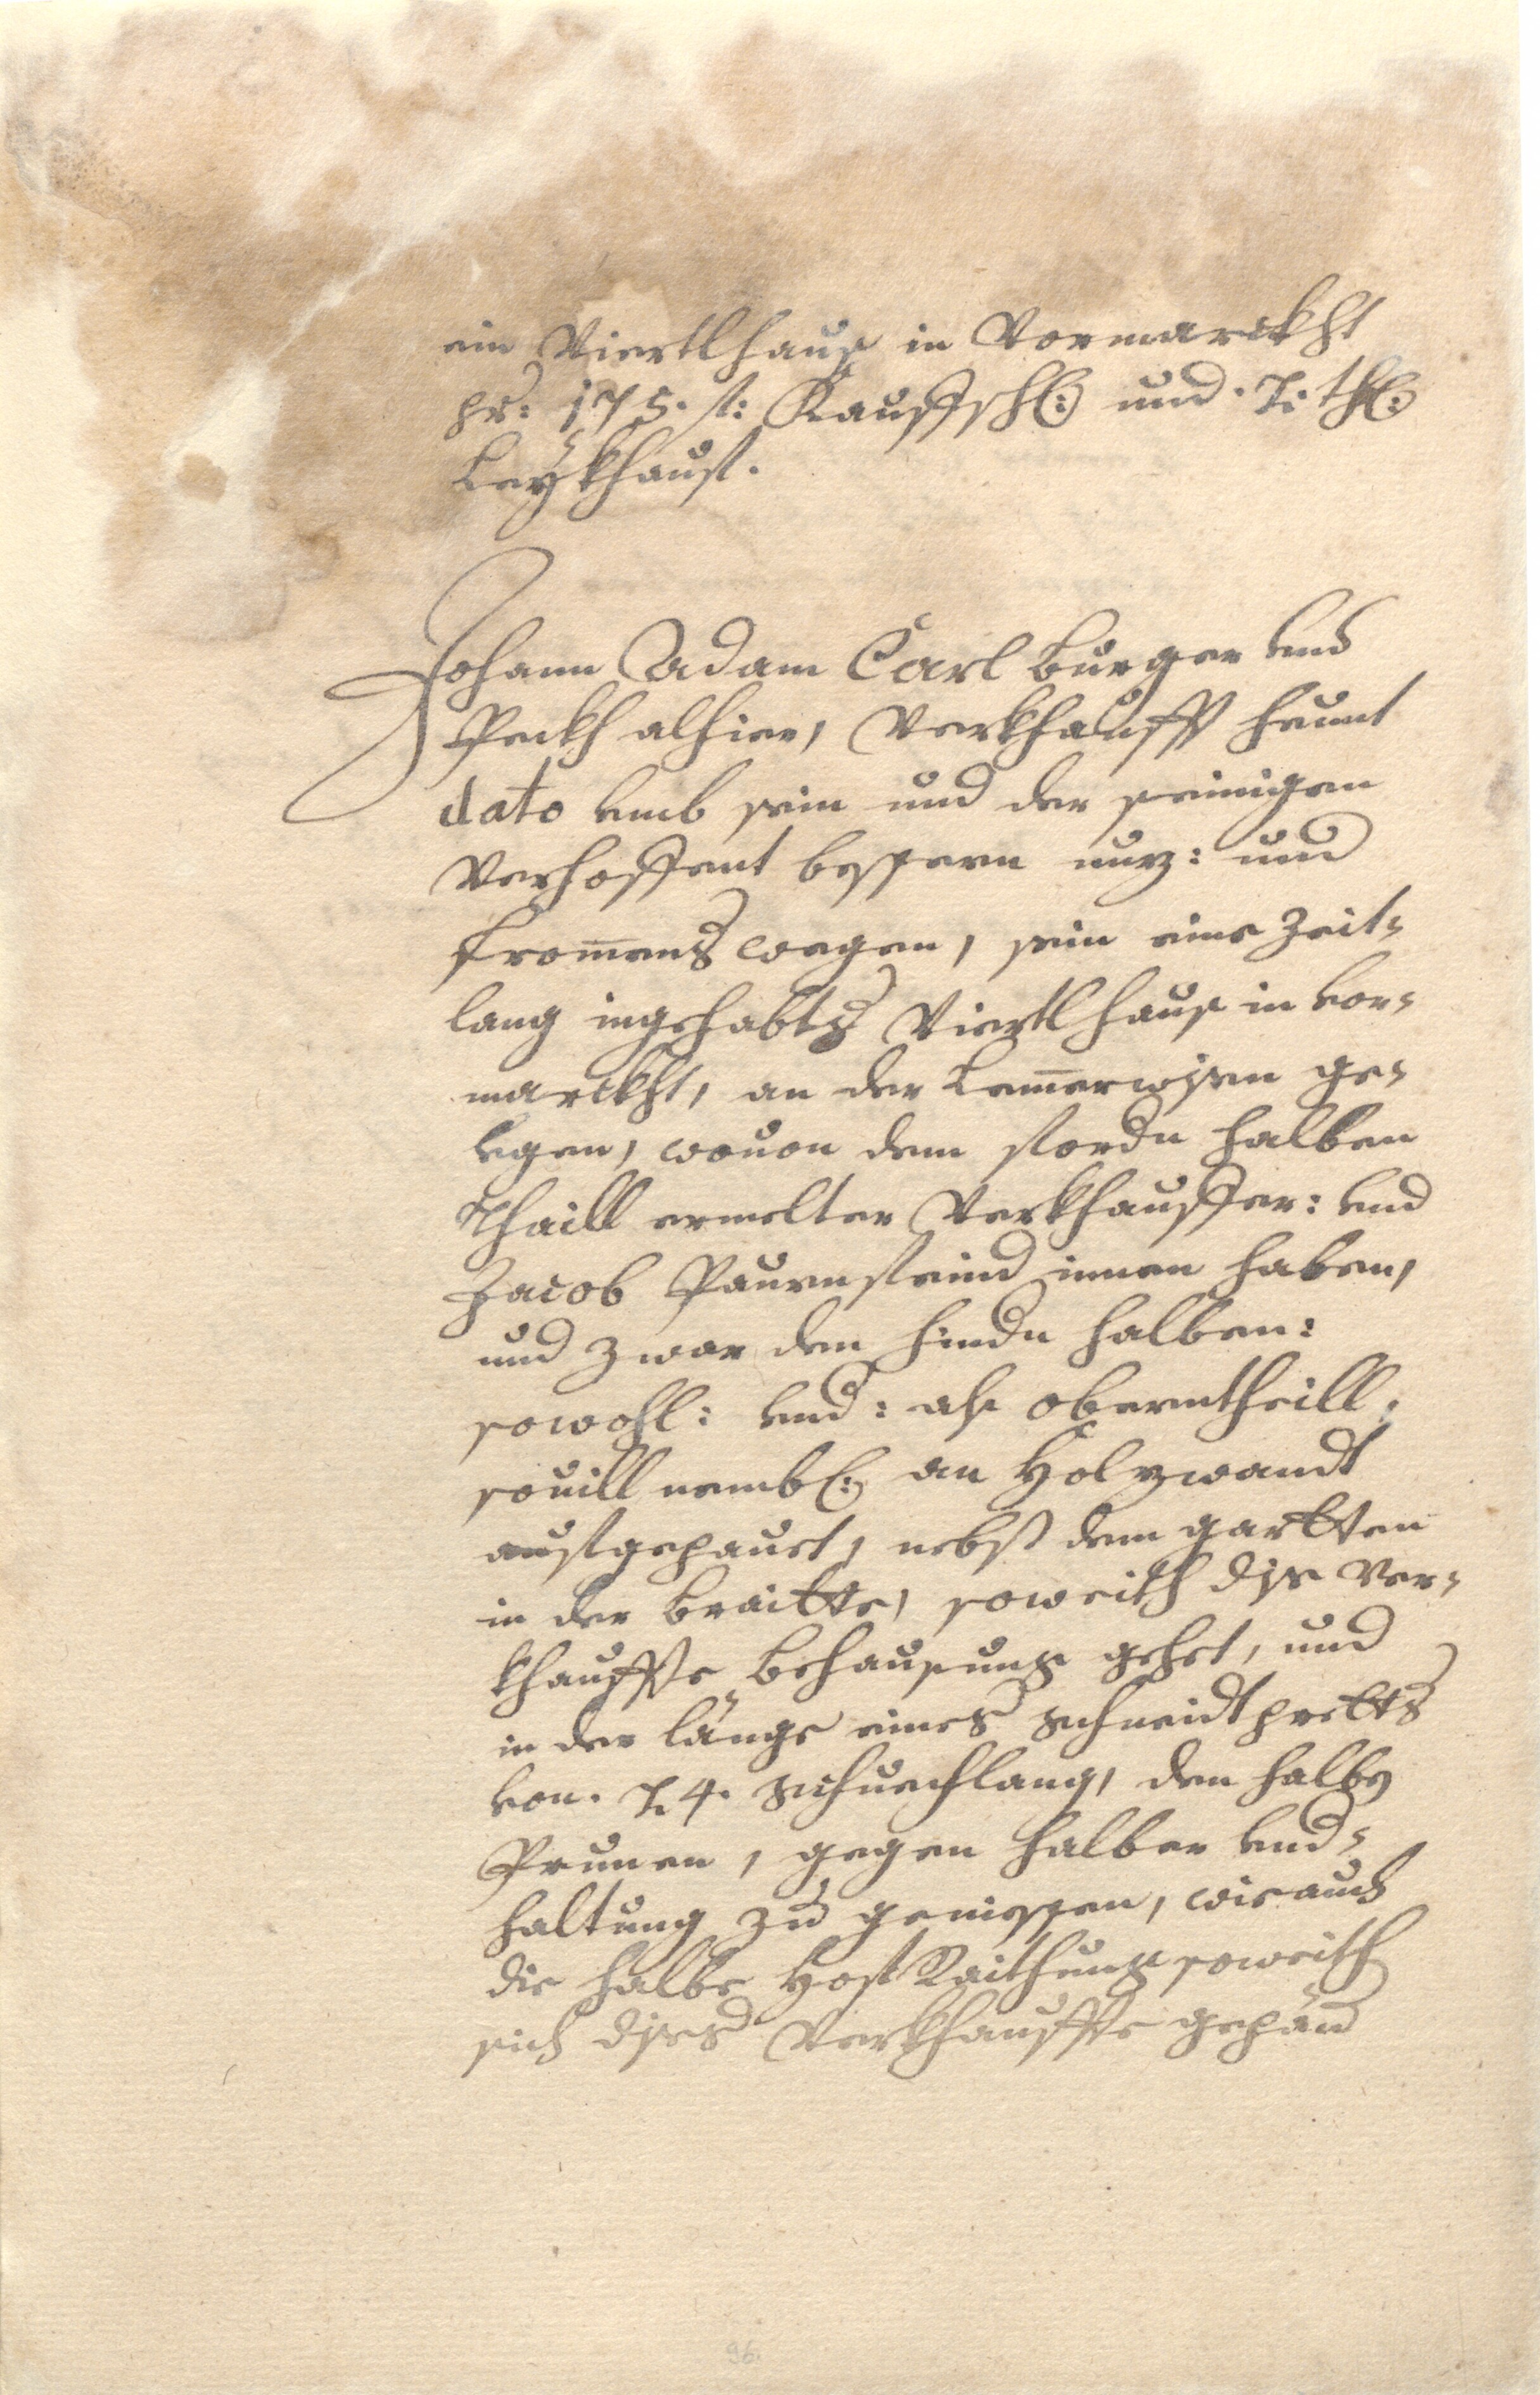 ein Viertlhaus in Vormarckht
pr: 175. fl: Kauffschl: und . 1. thl:
Leykhauff.
Johann Adam Carl Burger und
Peckh alhier, Verkhaufft heunt
dato umb sein und der seinigen
Verhoffent bessern nuz: und
fromens wegen, sein eine Zeit-
lang ingehabts Viertlhaus in Vor-
marckht, an der Lamerwisen ge-
legen, wovon dem fordn halben
Thaill ermelter Verkhauffer: und
Jacob Paurnfeind innen haben,
und zwar den hindn halben:
sowohl: und: als oberntheill,
sovill nembl: an Holzwandt
aufgepauet, nebst dem gartten
in der braitte, soweith dise ver-
khauffte behausung gehet, und
in der länge eines schneidtpretts
von . 14. schuechlang, den halbn
Prunen, gegen halber und-
haltung zu geniessen, wie auch
die halbe HofRaithung soweith
sich dises Verkhauffte gepäu
96.